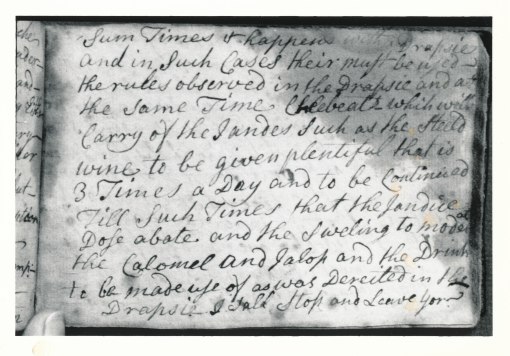 Sum Times it happens with Drapsie
and in Such Cases their must be used
the rules observed in the Drapsie and at
the Same Time which will
Carry of the Jandes Such as the Steeld
wine to be given plentiful that is
3 Times a Day and to be Continued
Till Such Times that the Jandice
Dose abate and the Sweling to
the Calomel and Jalop and the Drink
to be made use of as was Dereited in the
Drapsie I Shall Stop and Leave